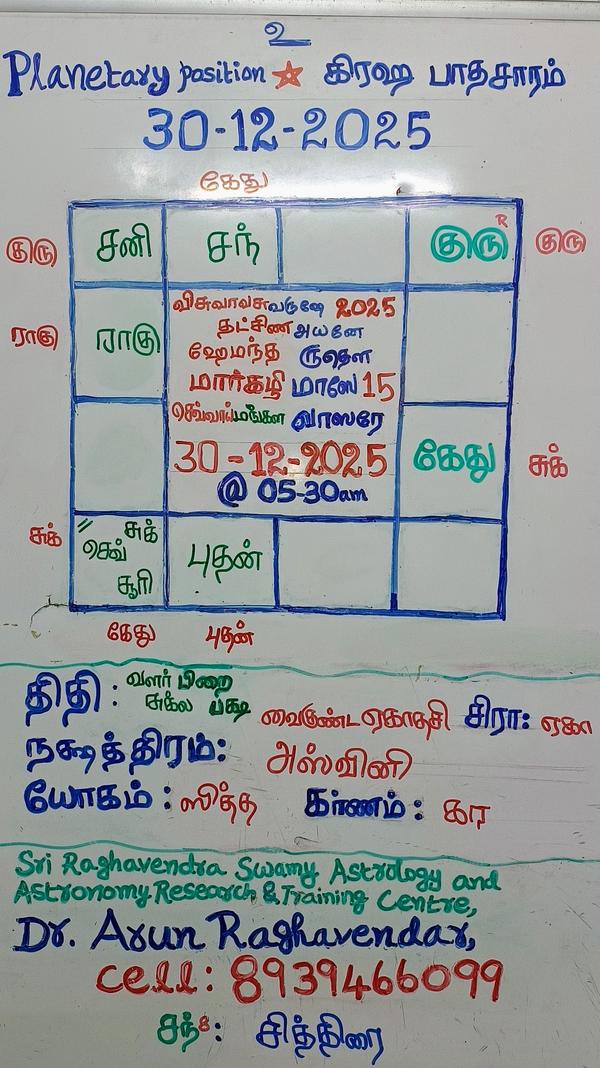 உ
Planetary position கிரஹ பாதசாரம்
30-12-2025
கேது
குரு சனி சந் குரு R குரு
ராகு ராகு
விசுவாவசு வருஷே 2025
தட்சிண அயனே
ஹேமந்த ருதௌ
மார்கழி மாஸே 15
செவ்வாய் மங்கள வாஸரே
30-12-2025
@ 05-30am
கேது சுக்
சுக் செவ் சுக் சூரி புதன்
கேது புதன்
திதி: வளர் பிறை
சுக்ல பக்ஷ வைகுண்ட ஏகாதசி சிரா: ஏகா
நக்ஷத்திரம்: அஸ்வினி
யோகம்: ஸித்த கர்ணம்: கர
Sri Raghavendra Swamy Astrology and
Astronomy Research & Training Centre,
Dr. Arun Raghavendar,
cell: 8939466099
சந்8: சித்திரை